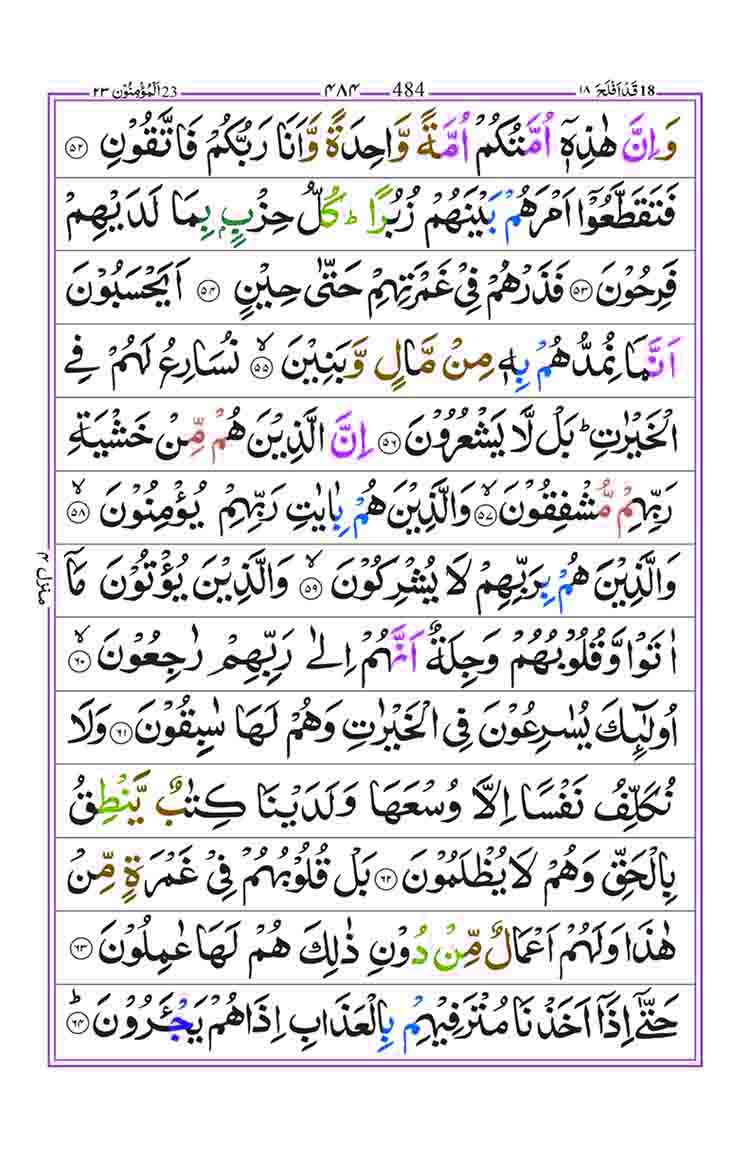 18 قَدْ اَفْلَحَ ۱۸ 484 ۴۸۴ 23 اَلْمُؤْمِنُوْن ۲۳
وَاِنَّ هٰذِهٖۤ اُمَّتُكُمْ اُمَّةً وَّاحِدَةً وَّاَنَا رَبُّكُمْ فَاتَّقُوْنِ ۝۵۲
فَتَقَطَّعُوْۤا اَمْرَهُمْ بَيْنَهُمْ زُبُرًاؕ كُلُّ حِزْبٍۭ بِمَا لَدَيْهِمْ
فَرِحُوْنَ ۝۵۳ فَذَرْهُمْ فِيْ غَمْرَتِهِمْ حَتّٰى حِيْنٍ ۝۵۴ اَيَحْسَبُوْنَ
اَنَّمَا نُمِدُّهُمْ بِهٖ مِنْ مَّالٍ وَّبَنِيْنَۙ ۝۵۵ نُسَارِعُ لَهُمْ فِي
الْخَيْرٰتِؕ بَلْ لَّا يَشْعُرُوْنَ ۝۵۶ اِنَّ الَّذِيْنَ هُمْ مِّنْ خَشْيَةِ
رَبِّهِمْ مُّشْفِقُوْنَۙ ۝۵۷ وَالَّذِيْنَ هُمْ بِاٰيٰتِ رَبِّهِمْ يُؤْمِنُوْنَۙ ۝۵۸
وَالَّذِيْنَ هُمْ بِرَبِّهِمْ لَا يُشْرِكُوْنَۙ ۝۵۹ وَالَّذِيْنَ يُؤْتُوْنَ مَاۤ
اٰتَوْا وَّقُلُوْبُهُمْ وَجِلَةٌ اَنَّهُمْ اِلٰى رَبِّهِمْ رٰجِعُوْنَۙ ۝۶۰
اُولٰٓئِكَ يُسٰرِعُوْنَ فِي الْخَيْرٰتِ وَهُمْ لَهَا سٰبِقُوْنَ ۝۶۱ وَلَا
نُكَلِّفُ نَفْسًا اِلَّا وُسْعَهَا وَلَدَيْنَا كِتٰبٌ يَّنْطِقُ
بِالْحَقِّ وَهُمْ لَا يُظْلَمُوْنَ ۝۶۲ بَلْ قُلُوْبُهُمْ فِيْ غَمْرَةٍ مِّنْ
هٰذَا وَلَهُمْ اَعْمَالٌ مِّنْ دُوْنِ ذٰلِكَ هُمْ لَهَا عٰمِلُوْنَ ۝۶۳
حَتّٰۤى اِذَاۤ اَخَذْنَا مُتْرَفِيْهِمْ بِالْعَذَابِ اِذَا هُمْ يَجْـَٔرُوْنَؕ ۝۶۴
منزل ۴